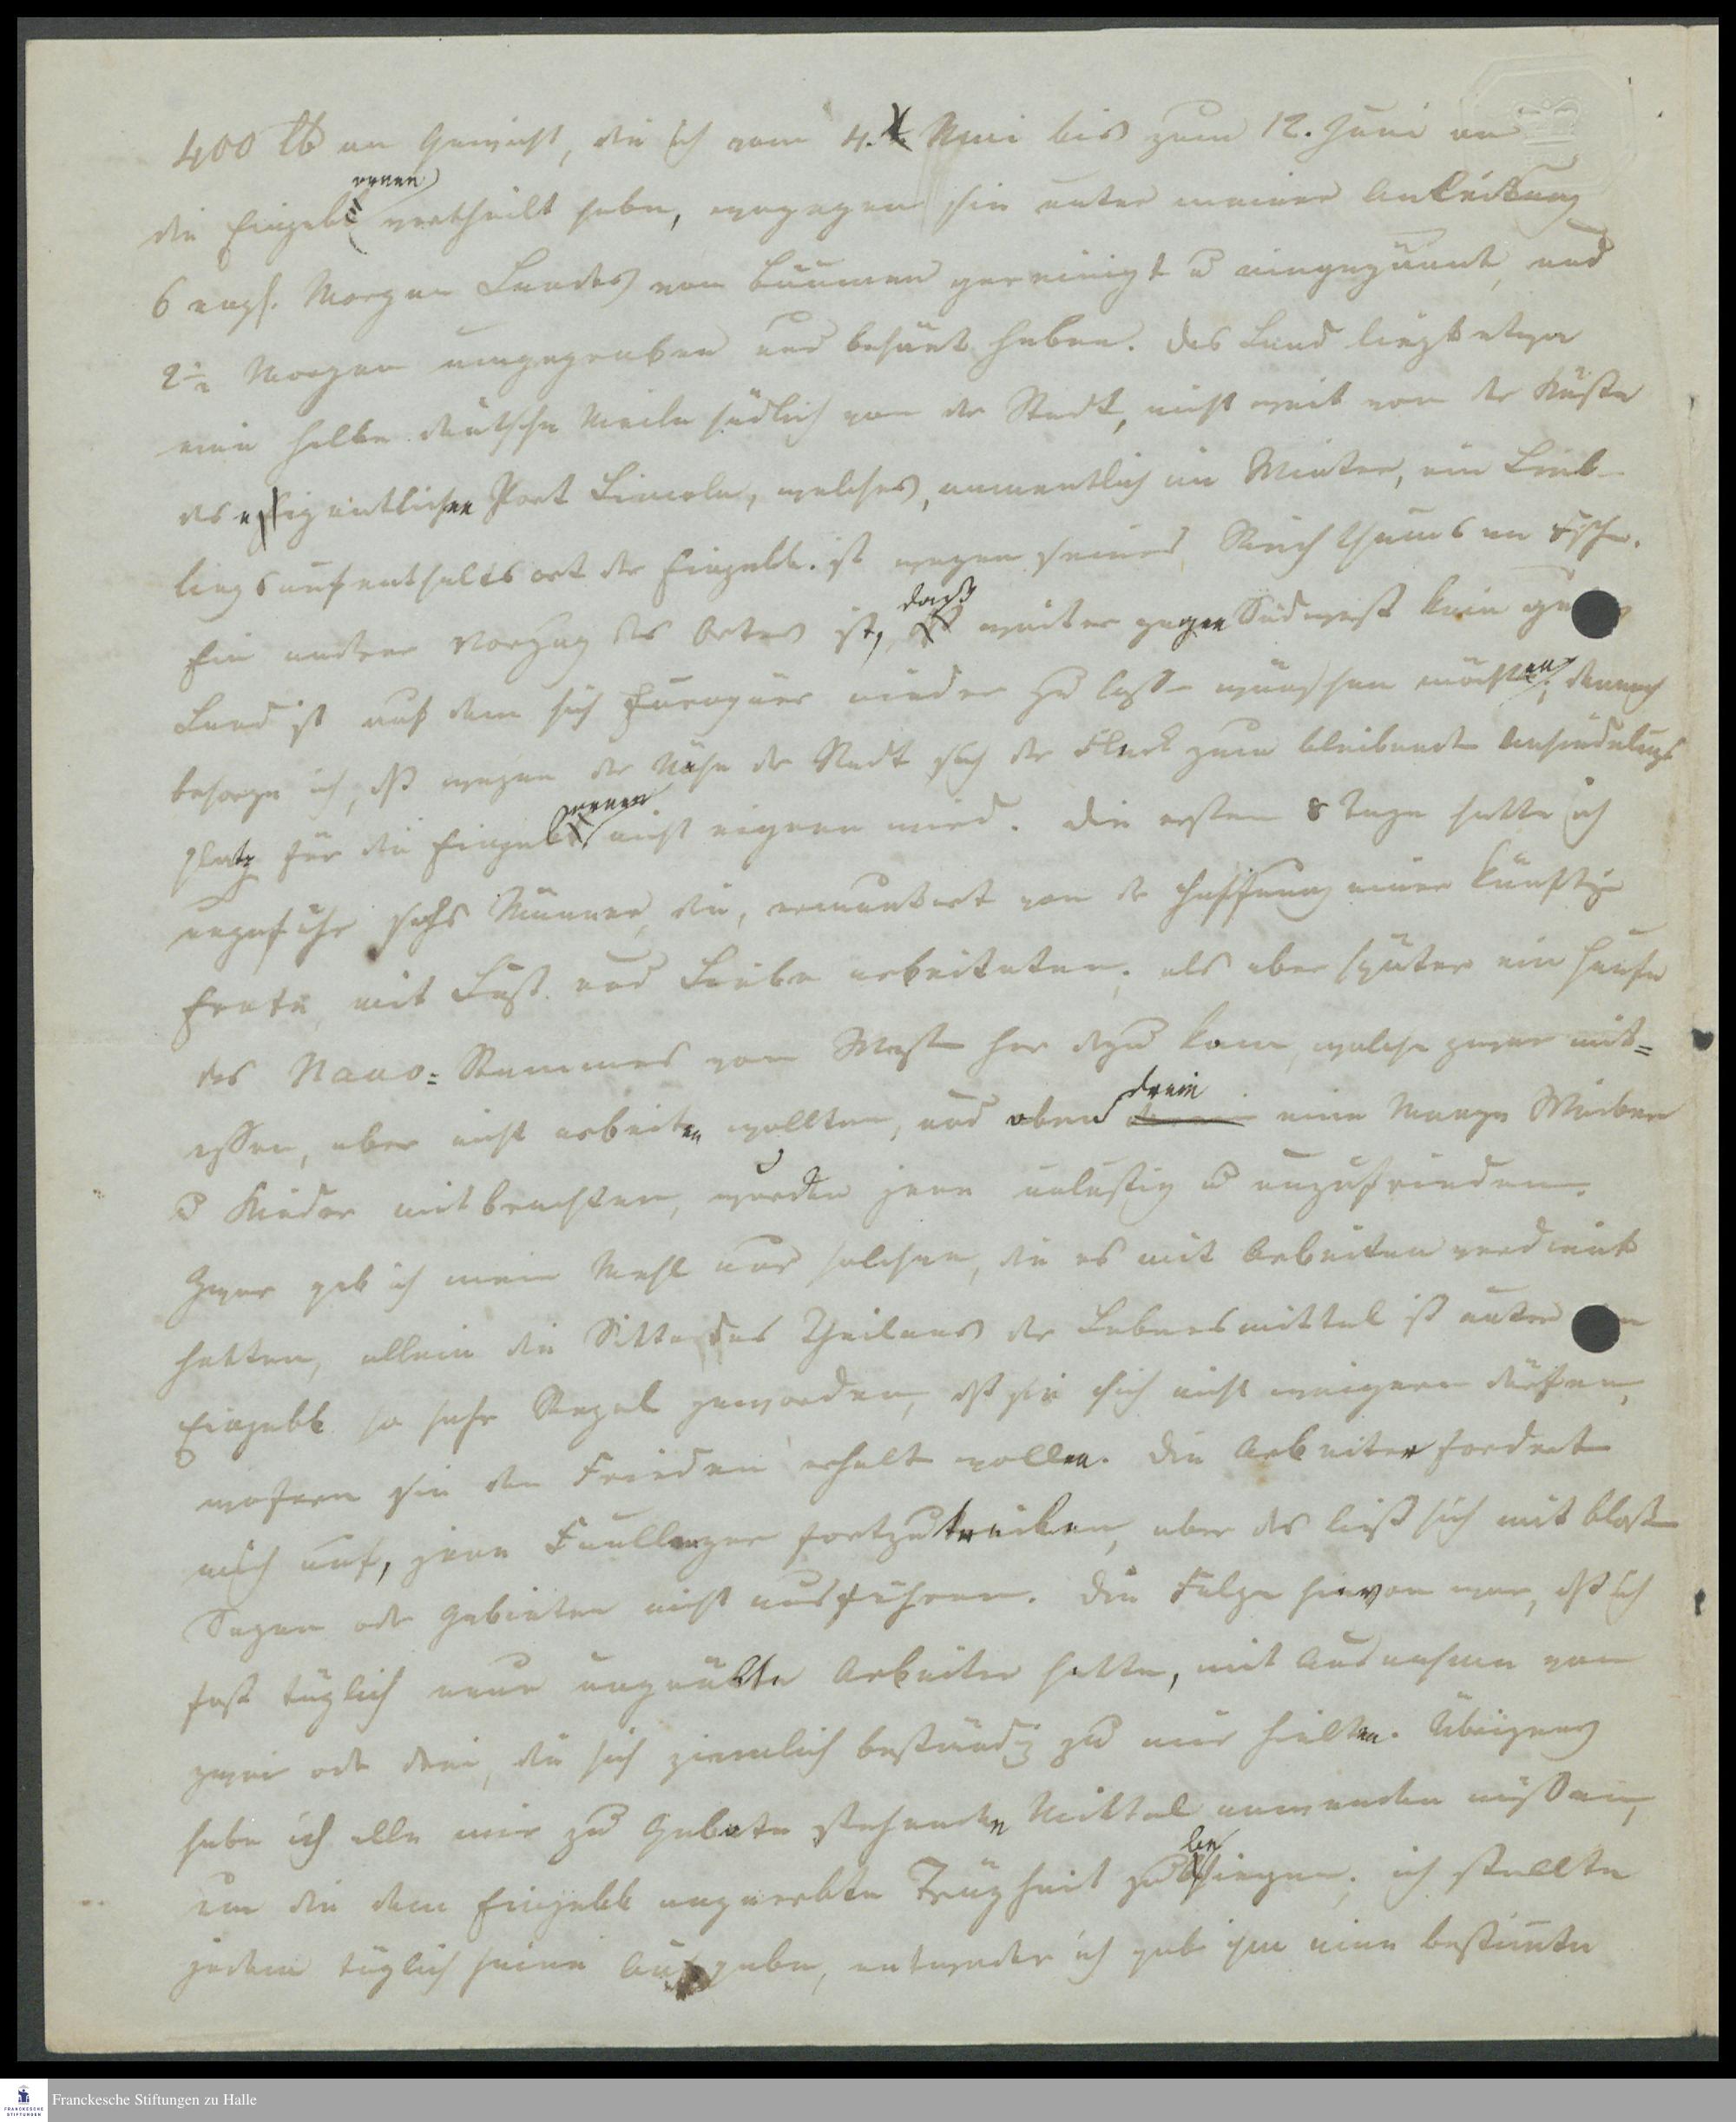 400 lb an Gewicht, die ich vom 4. Mai bis zum 12. Juni an
die Eingeb ornen vertheilt habe, wogegen sie unter meiner Anleitung
6 engl. Morgen Landes von Bäumen gereinigt u eingezäunt, und
2½ Morgen umgegraben und besäet haben. Das Land liegt etwa
eine halbe deutsche Meile südlich von der Stadt, nicht weit von der Küste
des eigentlichen Port Lincoln, welches, namentlich im Winter, ein Lieb-
lingsaufenthaltsort der Eingebb. ist wegen seines Reichthums an Fisch.
Ein anderer Vorzug des Ortes ist, daß weiter gegen Südwest kein
Land ist auf dem sich Europäer nieder zu lassen wünschen möchten; dennoch
besorge ich, dß wegen der Nähe der Stadt sich der Fleck zum bleibenden Ansiedelungs
platz für die Eingeb ornen nicht eignen wird. Die ersten 8 Tage hatte ich
ungefähr sechs Männer, die, ermuntert von der Hoffnung einer künftigen
Ernte, mit Lust und Liebe arbeiteten; als aber später ein Haufe
des Nauo=Stammes vom Westen her dazu kam, welche zwar mit=
essen, aber nicht arbeiten wollten, und oben drein eine Menge Weiber
u Kinder mitbrachten, wurden jene unlustig u unzufrieden.
Zwar gab ich mein Mehl nur solchen, die es mit Arbeiten verdient
hatten, allein die Sitte des Theilens der Lebensmittel ist unter
Eingebb so sehr Regel geworden, dß sie sich nicht weigern dürfen,
wofern sie den Frieden erhalten wollen. Die Arbeiter forderten
mich auf, jene Faullenzer fortzutreiben, aber das ließ sich mit bloßen
Sagen oder Gebieten nicht ausführen. Die Folge hievon war, dß ich
fast täglich neue ungeübte Arbeiter hatte, mit Ausnahme von
zwei oder drei, die sich ziemlich beständig zu mir hielten. Übrigens
habe ich alle mir zu Gebote stehenden Mittel anwenden müssen,
um die dem Eingebb angeerbte Trägheit zu besiegen; ich stellte
jedem täglich seine Aufgabe, entweder ich gab ihm eine bestimte
Franckesche Stiftungen zu Halle
FRANCKESCHE
STIFTUNGEN